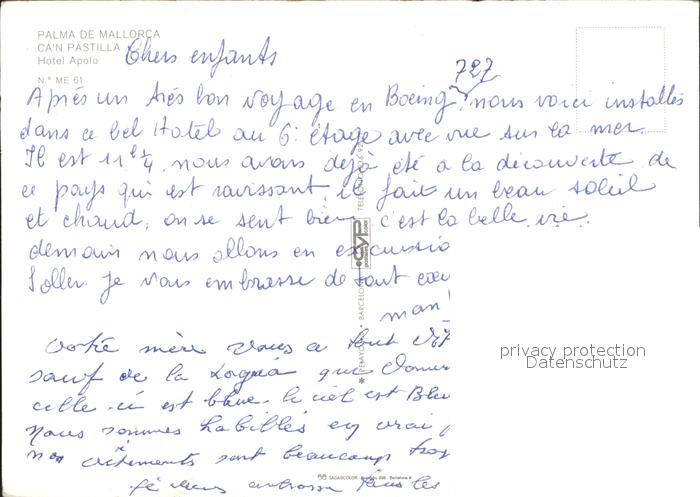 PALMA DE MALLORCA
CA'N PASTILLA
Hotel Apolo
N.º ME 61
Chers enfants
727
Après un très bon voyage en Boeing nous voici installés
dans ce bel Hotel au 6e étage avec vue sur la mer.
Il est 11 h 1/4, nous avons dejà été a la découverte de
ce pays qui est ravissant, il fait un beau soleil
et chaud, on se sent bien c'est la belle vie.
demain nous allons en excursio
Soller. Je vous embrasse de tout cœu
man
Votre mère vous a tout dit
sauf de la que
celle-ci est bleue. le ciel est Bleu
Nous sommes habillés en vrai
nos vêtements sont beaucoup trop
je vous embrasse tous les
BARCELONA
CYP
privacy protection
Datenschutz